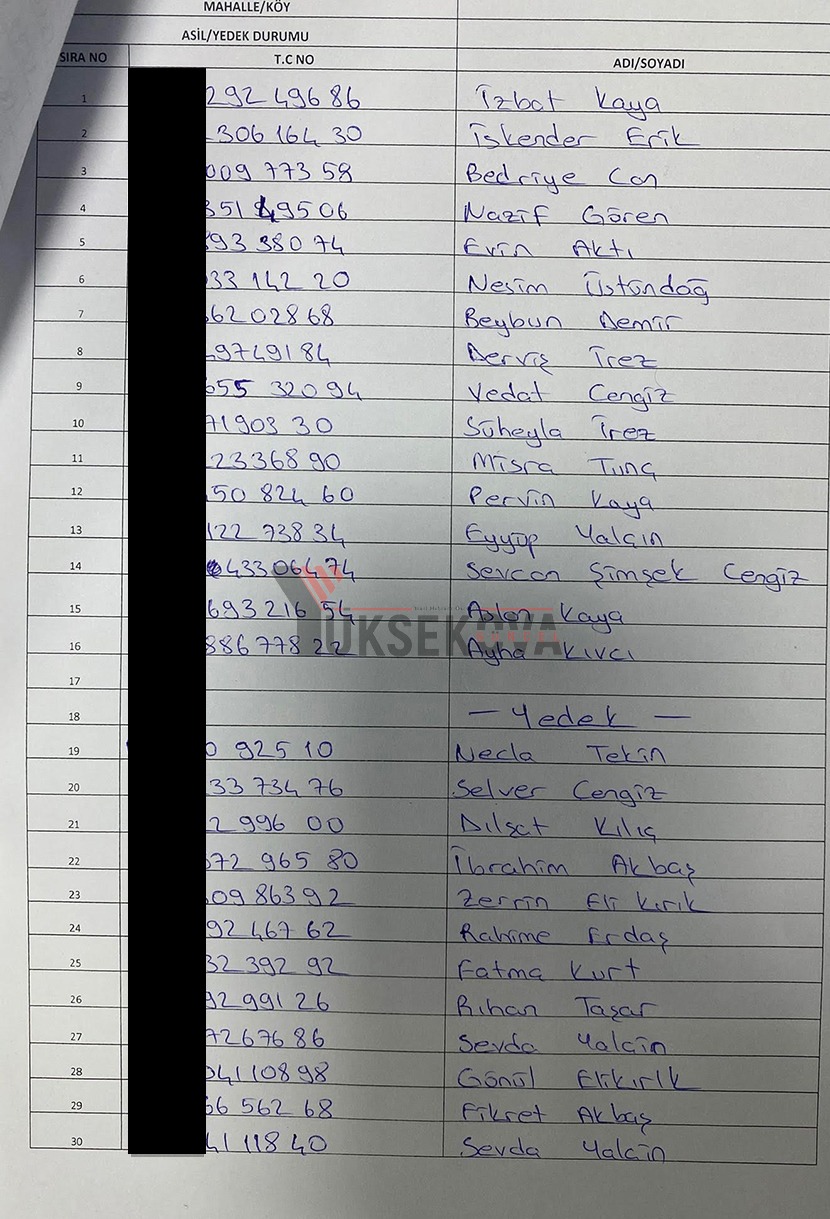 MAHALLE/KÖY
ASİL/YEDEK DURUMU
SIRA NO T.C NO ADI/SOYADI
1 292 496 86 İzbat Kaya
2 306 164 30 İskender Erik
3 009 773 58 Bedriye Can
4 351 49506 Nazif Gören
5 93 380 74 Evin Aktı
6 33 142 20 Nesim Üstündağ
7 62 028 68 Beybun Demir
8 9749184 Derviş İrez
9 655 320 94 Vedat Cengiz
10 71903 30 Süheyla İrez
11 23368 90 Misra Tunç
12 50 824 60 Pervin Kaya
13 122 738 34 Eyyüp Yalçın
14 43306474 Sevcan Şimşek Cengiz
15 693 216 54 Aslan Kaya
16 886 778 22 Ayha Kıvcı
17
18 — Yedek —
19 0 925 10 Necla Tekin
20 33 734 76 Selver Cengiz
21 2 996 00 Dilşat Kılıç
22 672 965 80 İbrahim Akbaş
23 09 863 92 Zerrin Eli Kırık
24 92 467 62 Rahime Erdaş
25 32 392 92 Fatma Kurt
26 92 991 26 Rıhan Taşar
27 7267686 Sevda Yalçin
28 04110898 Gönül Elikırık
29 66 562 68 Fikret Akbaş
30 41 118 40 Sevda Yalçin
YÜKSEKOVA